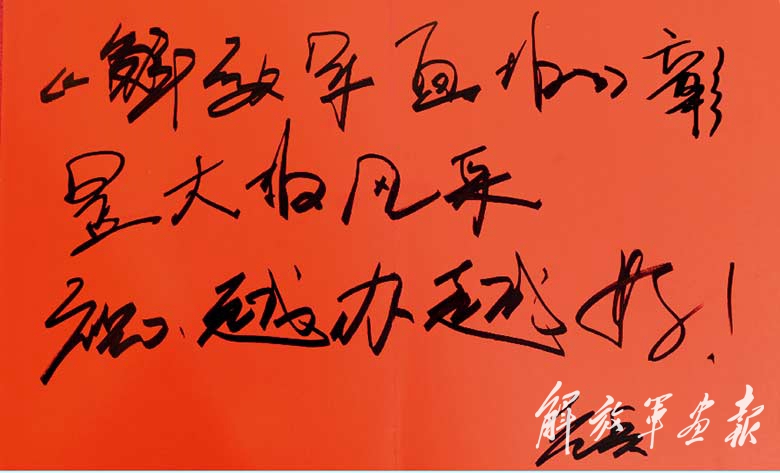 《解放军画报》彰
显大报风采
祝：越办越好！
解放军画报